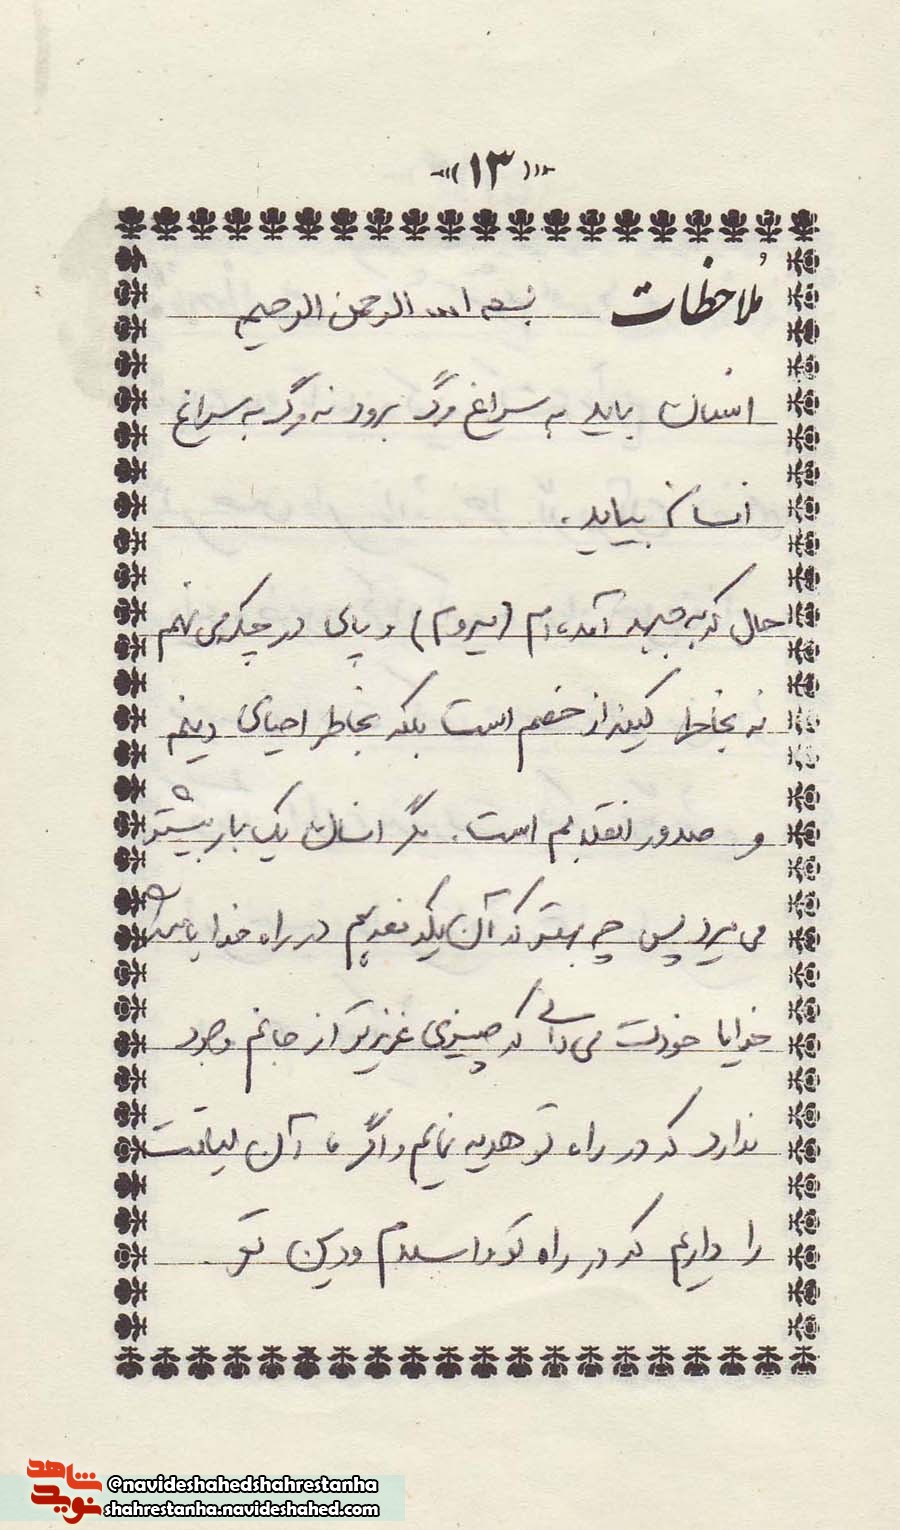 «۱۳»
مُلاحظات بسم الله الرحمن الرحیم
انسان باید به سراغ مرگ برود نه مرگ به سراغ
انسان بیاید.
حال که به جبهه آمده‌ام (میروم) و پای در چکمه می نهم
نه بخاطر کینه از خصم است بلکه بخاطر احیای دینم
و صدور انقلابم است. مگر انسان یک بار بیشتر
می میرد پس چه بهتر که آن یکدفعه هم در راه خدا باشد
خدایا خودت می دانی که چیزی عزیزتر از جانم وجود
ندارد که در راه تو هدیه نمایم و اگر ما آن لیاقت
را داریم که در راه تو و اسلام و دین تو
شاهد
نوید
@navideshahedshahrestanha
shahrestanha.navideshahed.com